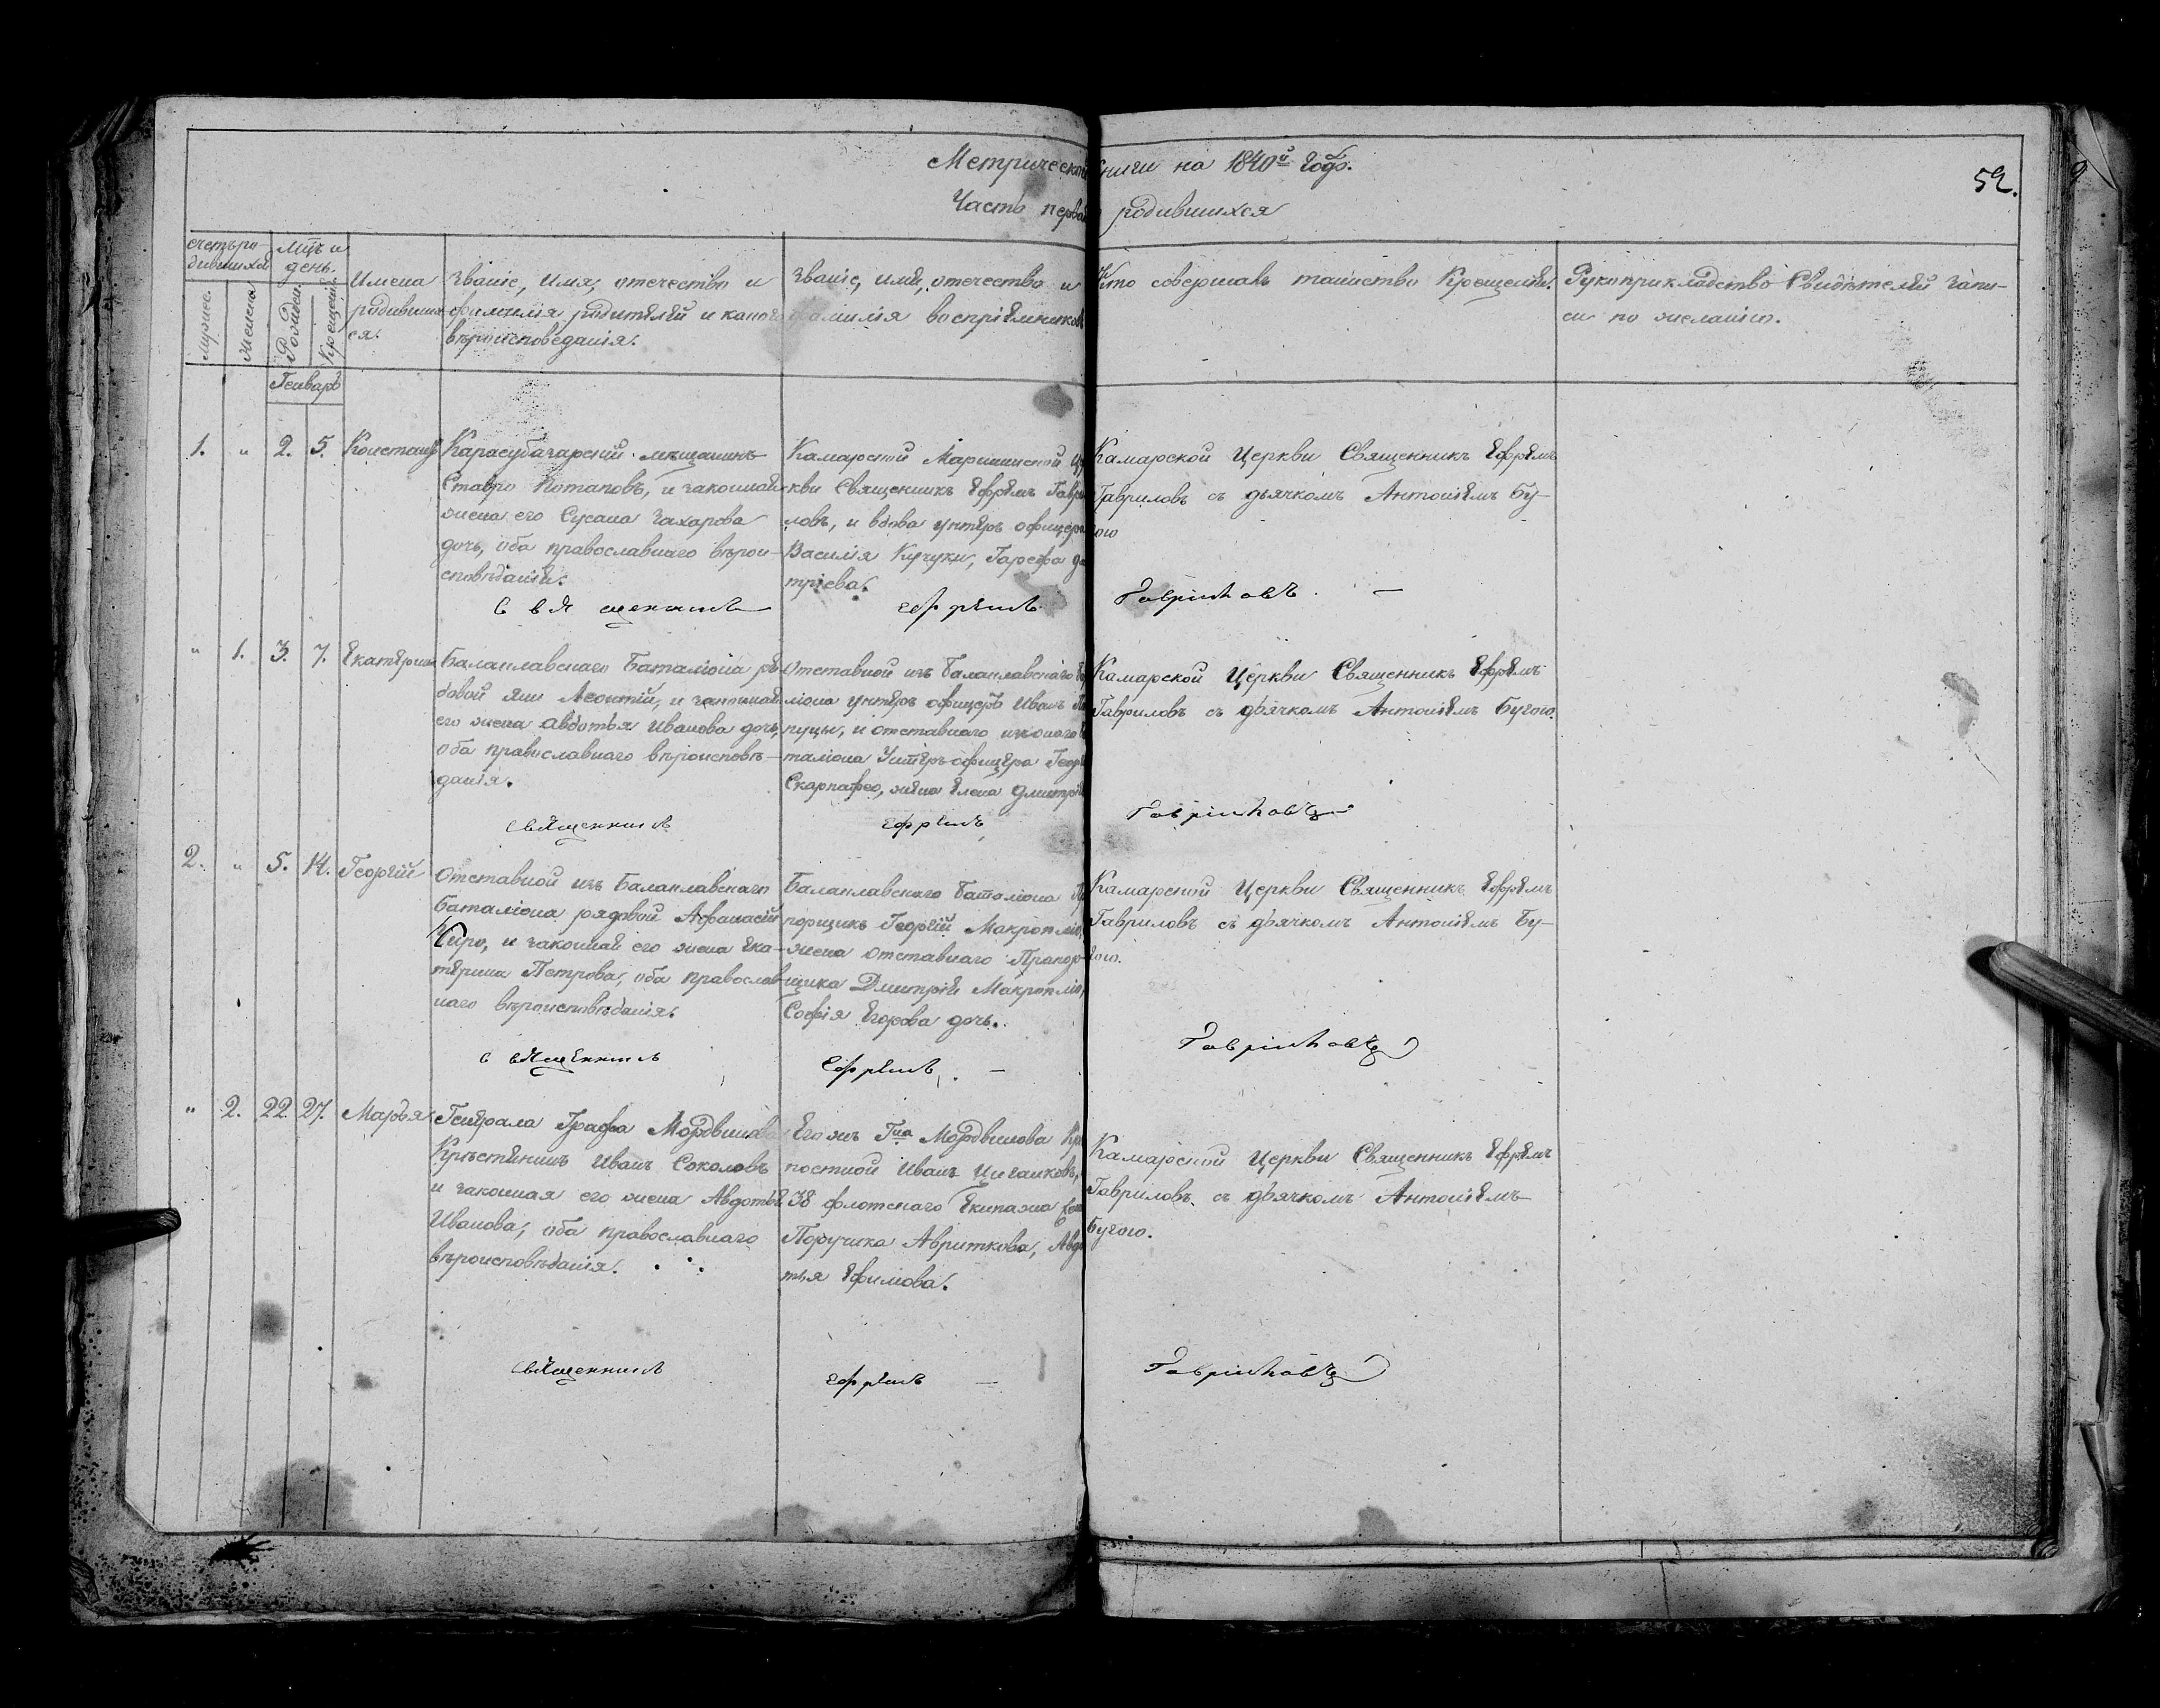 Метрической книги на 1840й Годъ.
Часть первая о родившихся
52.
Счетъ ро-
дившихся
Мцъ и
день.
Мужес.
Женска
Рожден.
Крещенія
Имена
родивших
ся.
Званіе, имя, отечество и
фамилія родителей и какого
вѣроисповеданія.
Званіе, имя, отечество и
фамилія воспріемниковъ
Кто совершалъ таинство Крещенія.
Рукоприкладство Свидѣтелей запи-
си по желанію.
Генварь
1. " 2. 5. Констант
Карасубазарскій мещанинъ
Ставро Потаповъ, и законная
жена его Сусана Захарова
дочь, оба православнаго вѣрои-
сповѣданія.
Камарской Маріинской Це
кви Священникъ Ефремъ Гаври
ловъ, и вдова унтеръ офицера
Василія Кучуки,
тріева.
Камарской Церкви Священникъ Ефремъ
Гавриловъ съ дьячкомъ Антоніемъ Бу-
гою
Священникъ Ефремъ Гавриловъ.
" 1. 3. 7. Екатерина
Балаклавскаго Баталіона ря
довой Яни Леонтій, и законная
его жена Авдотья Иванова дочь,
оба православнаго вѣроисповѣ-
данія.
Отставной изъ Балаклавскаго Ба
ліона унтеръ офицеръ Иванъ
пуцы, и отставнаго изъ онаго Ба
таліона Унтеръ-офицера Георгі
Скарпафео, жена Елена Дмитріе
Камарской Церкви Священникъ Ефремъ
Гавриловъ съ дьячкомъ Антоніемъ Бугою.
Священникъ Ефремъ Гавриловъ
2. " 5. 14. Георгій
Отставной изъ Балаклавскаго
Баталіона рядовой Афанасій
Чиро, и законная его жена Ека-
терина Петрова, оба православ-
наго вѣроисповѣданія.
Балаклавскаго Баталіона Пра
порщикъ Георгій Макропліо,
жена отставнаго Прапор-
щика Дмитрія Макропліо,
Софія Егорова дочь.
Камарской Церкви Священникъ Ефремъ
Гавриловъ съ дьячкомъ Антоніемъ Бу-
гою.
Священникъ Ефремъ Гавриловъ
" 2. 22. 27. Марья
Генерала Графа Мордвинова
Крѣстянинъ Иванъ Соколовъ
и законная его жена Авдотья
Иванова, оба православнаго
вѣроисповѣданія.
Его жъ Гна Мордвинова Крѣ
постной Иванъ Циганковъ,
38 флотскаго Екипажа
Поручика Авриткова, Авдо
тья Ефимова.
Камарской Церкви Священникъ Ефремъ
Гавриловъ съ дьячкомъ Антоніемъ
Бугою.
Священникъ Ефремъ Гавриловъ